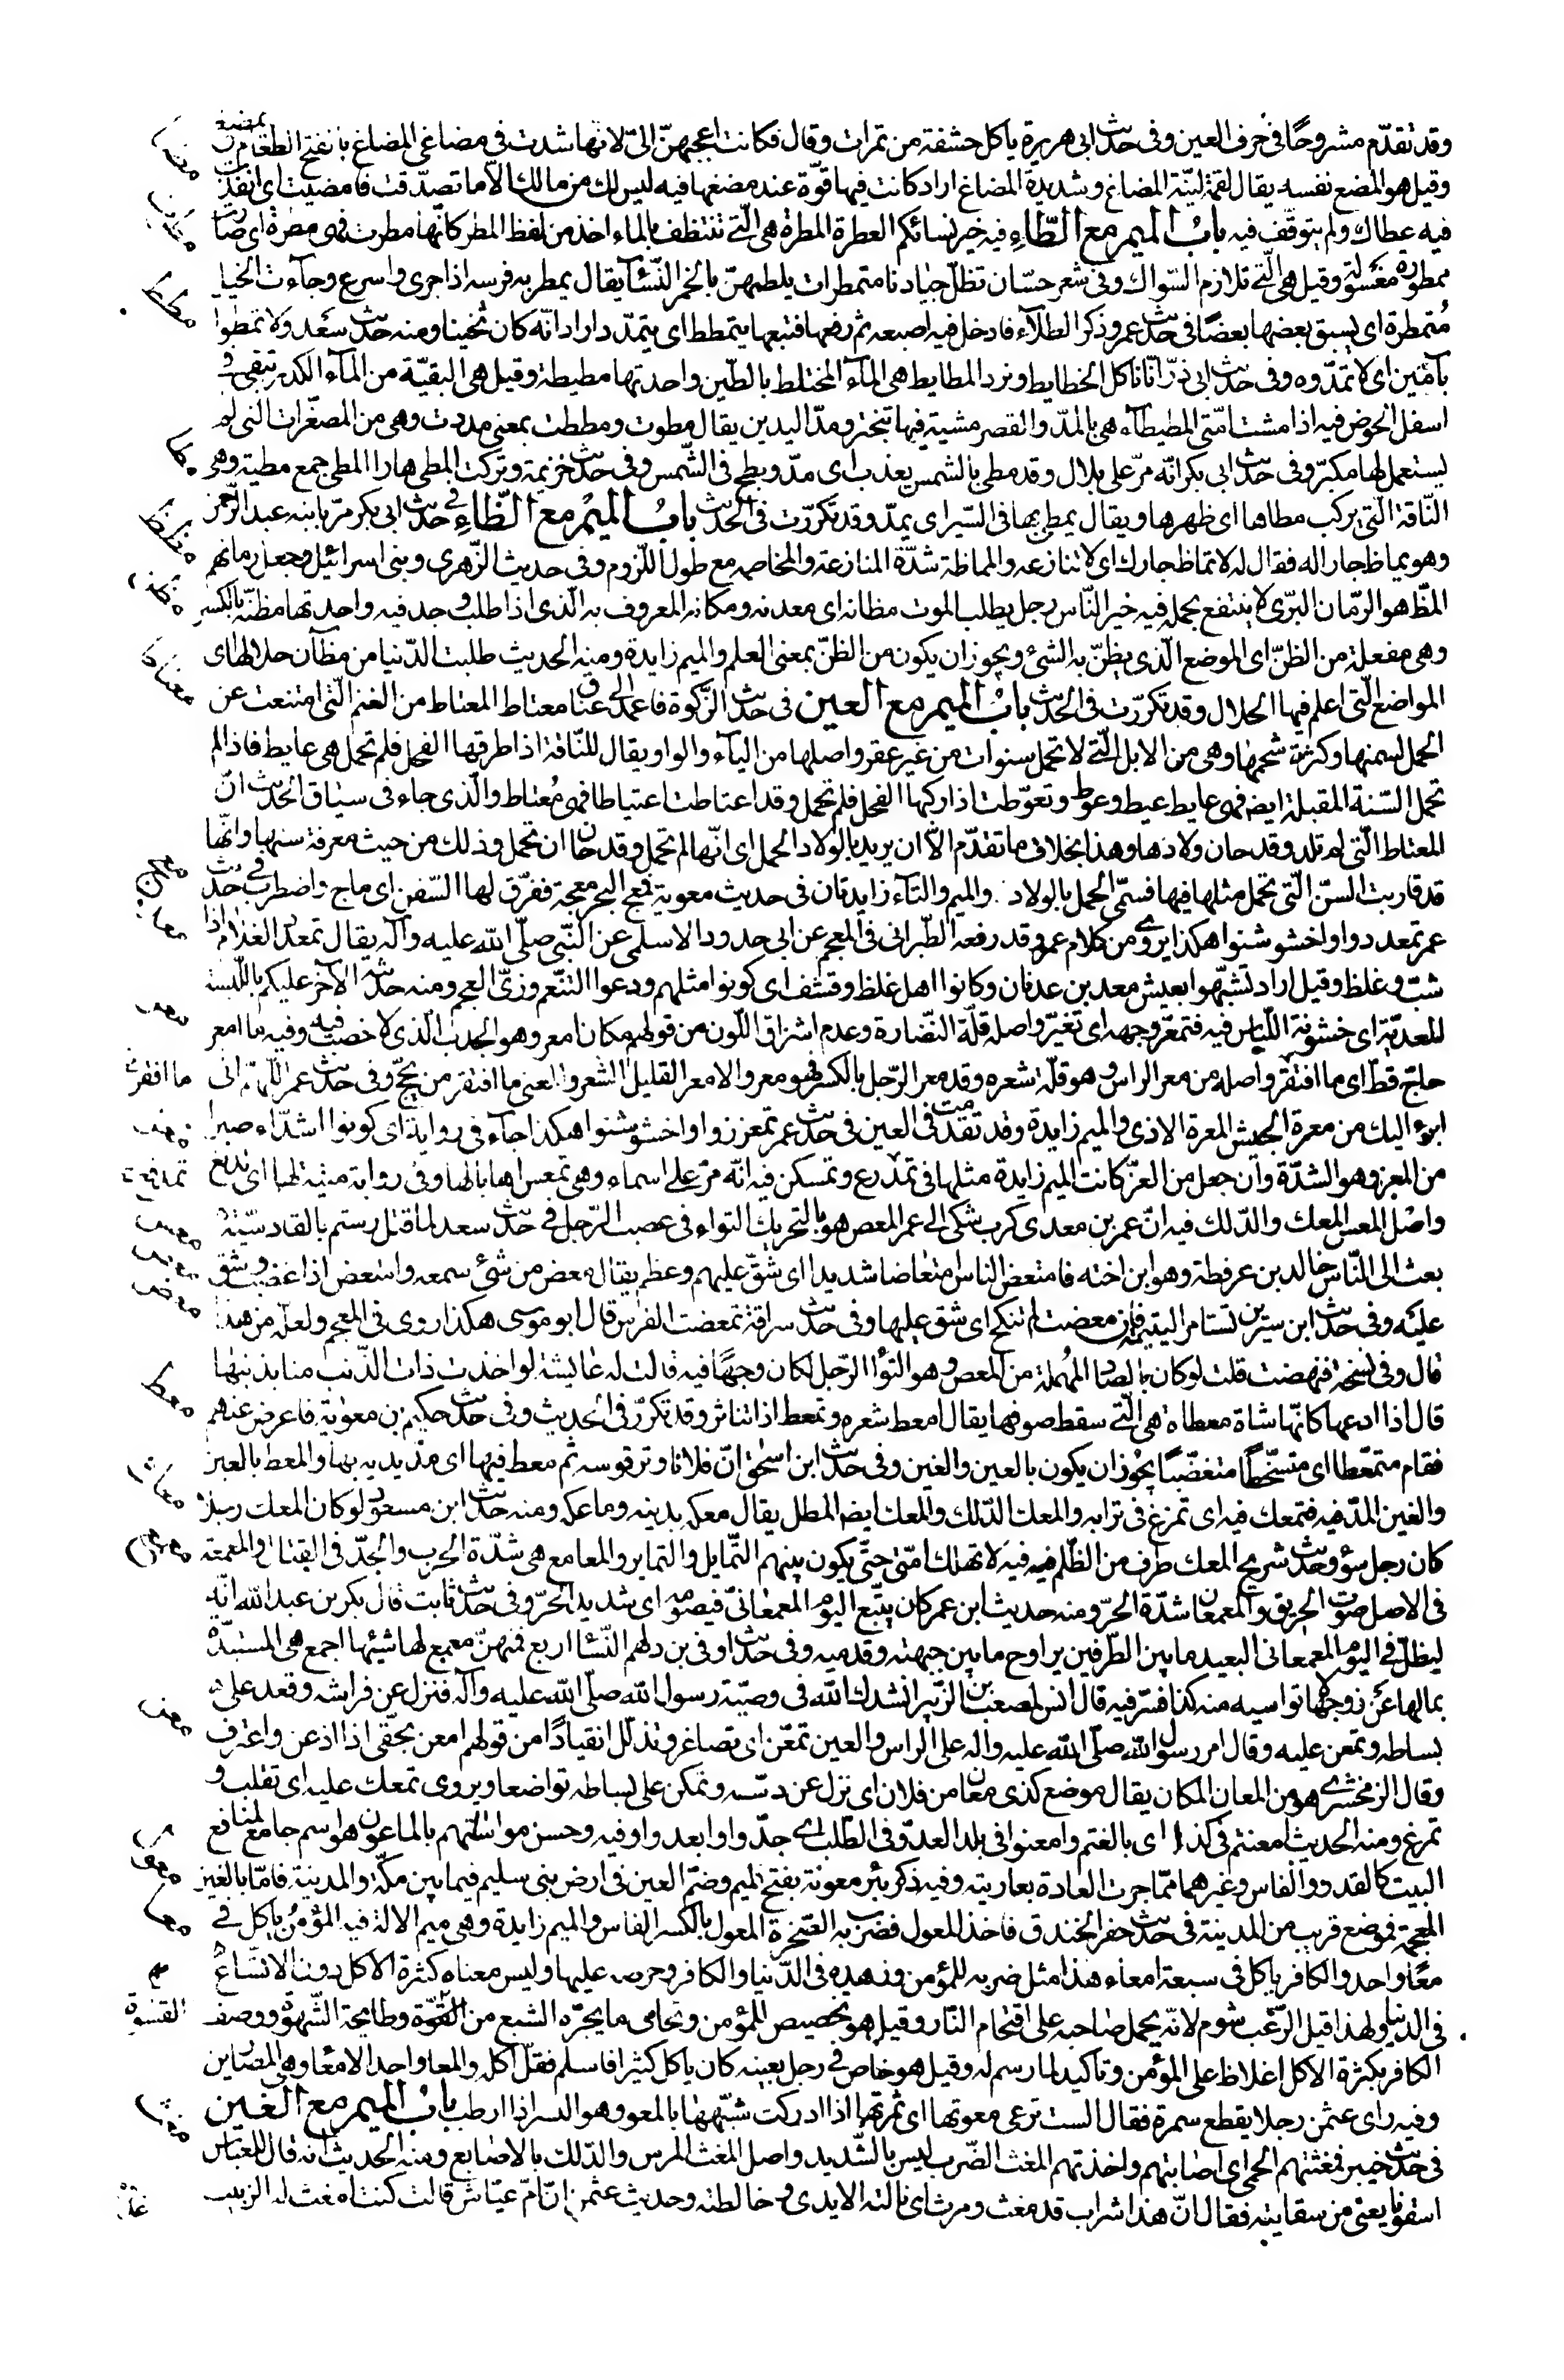 وقد تقدّم مشروحًا فى حرف العين وفى حدیث ابى هريرة ياكل حشفة من تمرات وقال فكانت اعجبهنّ الىّ لانّها شدت فى مضاغى المضاغ بالفتح الطعام يمضغ
وقيل هو المضغ نفسه يقال لقمة ليّنة المضاغ وشديدة المضاغ اراد كانت فيها قوّة عند مضغها فيه ليس لك من مالك الّا ما تصدّقت فامضيت اى انفذت
فيه عطاك ولم يتوقّف فيه باب الميم مع الطّاء فيه خير نسائكم العطرة المطرة هى الّتى تتنظف بالماء اخذ من لفظ المطر كانّها مطرت فهى مطرة اى صارت
ممطورة مغسولة وقيل هى الّتى تلازم السّواك وفى شعر حسّان تظلّ جيادنا متمطرات يلطمهنّ بالخمر النّسآ يقال يمطر به فرسه اذا جرى واسرع وجاءت الخيل
مُتمطرة اى يسبق بعضها بعضًا فى حدیث عمر وذكر الطلآء فادخل فيه اصبعه ثم رفعها فتبعها يتمطط اى يتمدّد اراد انّه كان ثخينا ومنه حدیث سعد ولا تمطوا
بآمين اى لا تمدّوه وفى حدیث ابى ذرّ انّا ناكل الخطايط ونرد المطايط هى المآء المختلط بالطّين واحدتها مطيطة وقيل هى البقيّة من المآء الكدر تبقى فى
اسفل الحوض فيه اذا مشت امّتى المطيطآء هى بالمدّ والقصر مشية فيها تبختر ومدّ اليدين يقال مطوت ومططت بمعنى مددت وهى من المصغّرات التى لم
يستعمل لها مكبّر وفى حدیث ابى بكر انّه مرّ على بلال وقد مطى بالشمس يعذب اى مدّ وبطح فى الشّمس وفى حدیث خزيمة وتركت المطى هارا المطى جمع مطية وهى
النّاقة الّتى يركب مطاها اى ظهرها ويقال يمطى بها فى السّير اى يمدّ وقد تكرّرت فى الحدیث باب الميم مع الظّاء فى حدیث ابى بكر مرّ بابنه عبد الرّحمن
وهو يماظ جارا له فقال له لا تماظ جارك اى لا تنازعه والمماظة شدّة المنازعة والمخاصمه مع طول اللّزوم وفى حديث الزّهرى وبنى اسرائيل وجعل رمانهم
المظّ هو الرمّان البرّى لا ينتفع بحمله فيه خير النّاس رجل يطلب الموت مظانه اى معدنه ومكانه المعروف به الّذى اذا طلب وجد فيه واحدتها مظنّة بالكسر
وهى مفعلة من الظنّ اى الموضع الّذى يظنّ به الشئ ويجوز ان يكون من الظنّ بمعنى العلم والميم زايدة ومنه الحديث طلبت الدّنيا من مظآن حلالها اى
المواضع الّتى اعلم فيها الحلال وقد تكرّرت فى الحدیث باب الميم مع العين فى حدیث الزّكوة فاعمد الى عناق معتاط المعتاط من الغنم الّتى امتنعت عن
الحمل لسمنها وكثرة شحمها وهى من الابل الّتى لا تحمل سنوات من غير عقر واصلها من اليآء والواو يقال للنّاقة اذا طرقها الفحل فلم تحمل هى عايط فاذا لم
تحمل السّنة المقبلة ايض فهى عايط عيط وعوط وتعوّطت اذا ركبها الفحل فلم تحمل وقد اعتاطت اعتياطا فهى مُعتاط والّذى جاء فى سياق الحدیث انّ
المعتاط الّتى لم تلد وقد حان ولادها وهذا بخلاف ما تقدّم الّا ان يريد بالولاد الحمل اى انّها لم تحمل وقد حان ان تحمل وذلك من حيث معرفة سنها وانّها
قد قاربت السنّ الّتى تحمل مثلها فيها فسمّى الحمل بالولاد . والميم والتآء زايدتان فى حديث معوية فمعج البحر معجة ففرّق لها السّفن اى ماج واضطرب فى حدیث
عمر تمعددوا واخشوشنوا هكذا يروى من كلام عمر وقد رفعه الطّبرانى فى المعجم عن ابى حدرد الاسلمى عن النّبى صلّى الله عليه وآله يقال تمعدد الغلام اذا
شبّ وغلظ وقيل اراد تشبّهوا بعيش معد بن عدنان وكانوا اهل غلظ وقشف اى كونوا مثلهم ودعوا التنعّم وزىّ العجم ومنه حدیثه الآخر عليكم باللّبسة
المعدّية اى خشونة اللّباس فيه فتمعّر وجهه اى تغيّر واصله قلّة النّضارة وعدم اشراق اللّون من قولهم مكان امعر وهو الجدب الّذى لا خصب فيه وفيه ما امعر
حاجّ قطّ اى ما افتقر واصله من معر الراس وهو قلّة شعره وقد معر الرّجل بالكسر فهو معر والامعر القليل الشّعر والمعنى ما افتقر من يحجّ وفى حدیث عمر اللّهمّ انى
ابرء اليك من معرة الجيش المعرة الاذى والميم زايدة وقد تقدّمت فى العين فى حدیث عمر تمعززوا واخشوشنوا هكذا جآء فى رواية اى كونوا اشدّاء صبرا
من المعز وهو الشدّة وان جعل من العزّ كانت الميم زايدة مثلها فى تمدرع وتمسكن فيه انّه مرّ على اسماء وهى تمعس اهابا لها وفى رواية منيئة لها اى تدبغ
واصل المعس المعك والدّلك فيه انّ عمر بن معدى كرب شكى الى عمر المعص هو بالتحريك التواء فى عصب الرّجل فى حدیث سعد لما قتل رستم بالقادسيّة
بعث الى النّاس خالد بن عرفطة وهو ابن اخته فامتعض الناس امتعاضا شديدا اى شقّ عليهم وعظم يقال معض من شئ سمعه وامتعض اذا غضب وشق
عليه وفى حدیث ابن سيرين تستامر اليتيمة فان معضت لم تنكح اى شق عليها وفى حدیث سراقة تمعضت الفرس قال ابو موسى هكذا روى فى المعجم ولعلّه من هذا
قال وفى نسخة فنهضت قلت لو كان بالصاد المهملة من المعص وهو التوا الرّجل لكان وجهًا فيه قالت له عايشة لو اخذت ذات الذّنب منا بذنبها
قال اذا ادعها كانّها شاة معطاء هى الّتى سقط صوفها يقال امعط شعره وتمعط اذا تناثر وقد تكرّر فى الحديث وفى حدیث حكيم بن معوية فاعرض عنهم
فقام متمعّطا اى متسخّطًا متغضّبًا يجوز ان يكون بالعين والغين وفى حدیث ابن اسحق انّ فلانا وتر قوسه ثم معط فيها اى مدّ يديه بها والمعط بالعين
والغين المدّ فيه فتمعك فيه اى تمرّغ فى ترابه والمعك الدّلك والمعك ايضا المطل يقال معكه بدينه وماعكه ومنه حدیث ابن مسعود لو كان المعك رجلا
كان رجل سؤ وحدیث شريح المعك طرف من الظّلم فيه لا تهلك امّتى حتّى يكون بينهم التّمايل والتمايز والمعامع هى شدّة الحرب والجدّ فى القتال والمعمعة
فى الاصل صوت الحريق والمعمعان شدّة الحرّ ومنه حديث ابن عمر كان يتّبع اليوم المعمعانىّ فيصومه اى شديد الحرّ وفى حدیث ثابت قال بكر بن عبد الله انّه
ليظلّ فى اليوم المعمعانى البعيد ما بين الطّرفين يراوح ما بين جبهته وقدميه وفى حدیث اوفى بن دلهم النّسآ اربع فمنهنّ معمع لها شيئها اجمع هى المستبدّة
بمالها عن زوجها لا تواسيه منه كذا فسّر فيه قال انس لمصعب بن الزّبير انشدك الله فى وصيّة رسول الله صلّى الله عليه وآله فنزل عن فراشه وقعد على
بساطه وتمعن عليه وقال امر رسول الله صلّى الله عليه واله على الراس والعين تمعّن اى تصاغر وتذلّل انقيادًا من قولهم امعن بحقّى اذا اذعن واعترف
وقال الزمخشرى هو من المعان المكان يقال موضع كذى معان من فلان اى نزل عن دسّه وتمكن على بساطه تواضعا ويروى تمعك عليه اى تقلب و
تمرغ ومنه الحديث امعنتم فى كذا اى بالغتم وامعنوا فى بلد العدوّ وفى الطّلب اى جدّوا وابعدوا وفيه وحسن مواساتهم بالماعون هو اسم جامع لمنافع
البيت كالقدر والفاس وغيرهما ممّا جرت العادة بعاريته وفيه ذكر بئر معونة بفتح الميم وضمّ العين فى ارض بنى سليم فيما بين مكّة والمدينة فامّا بالغين
المعجمة فموضع قريب من المدينة فى حدیث حفر الخندق فاخذ المعول فضرب به الصّخرة المعول بالكسر الفاس والميم زايدة وهى ميم الالة فيه المؤمن ياكل فى
معًا واحد والكافر ياكل فى سبعة امعاء هذا مثل ضربه للمؤمن وزهده فى الدّنيا والكافر وحرصه عليها وليس معناه كثرة الاكل دون الاتّساع
فى الدنيا ولهذا قيل الرّغب شوم لانّه يحمل صاحبه على اقتحام النّار وقيل هو تخصيص للمؤمن وتحامى ما يجرّه الشبع من القسوة وطايحة الشّهوة ووصف
الكافر بكثرة الاكل اغلاظ على المؤمن وتاكيد لما رسم له وقيل هو خاص فى رجل بعينه كان ياكل كثيرا فاسلم فقلّ اكله والمعا واحد الامعا وهى المصارين
وفيه راى عثمن رجلا يقطع سمرة فقال الست ترعى معوتها اى ثمرتها اذا ادركت شبّهها بالمعو وهو البسر اذا ارطب باب الميم مع الغين
فى حدیث خيبر فمغثتهم الحمى اى اصابتهم واخذتهم المغث الضّرب ليس بالشّديد واصل المغث المرس والدّلك بالاصابع ومنه الحديث انه قال للعبّاس
اسقونا يعنى من سقايته فقال انّ هذا شراب قد مغث ومرث اى نالته الايدى وخالطته وحديث عثمن انّ امّ عيّاش قالت كنت امغث له الزبيب